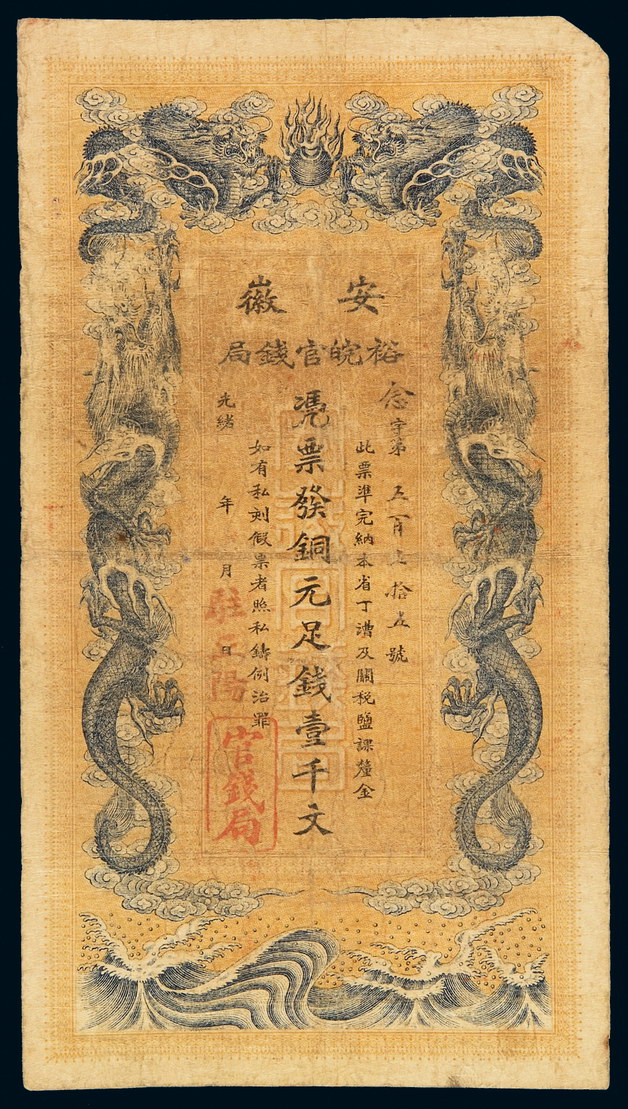 安徽
裕皖官錢局
念字第五百七拾五號
此票準完納本省丁漕及關稅鹽課釐金
憑票發銅元足錢壹千文
如有私刻假票者照私鑄例治罪
光緒 年 月 日
駐 陽
官錢局